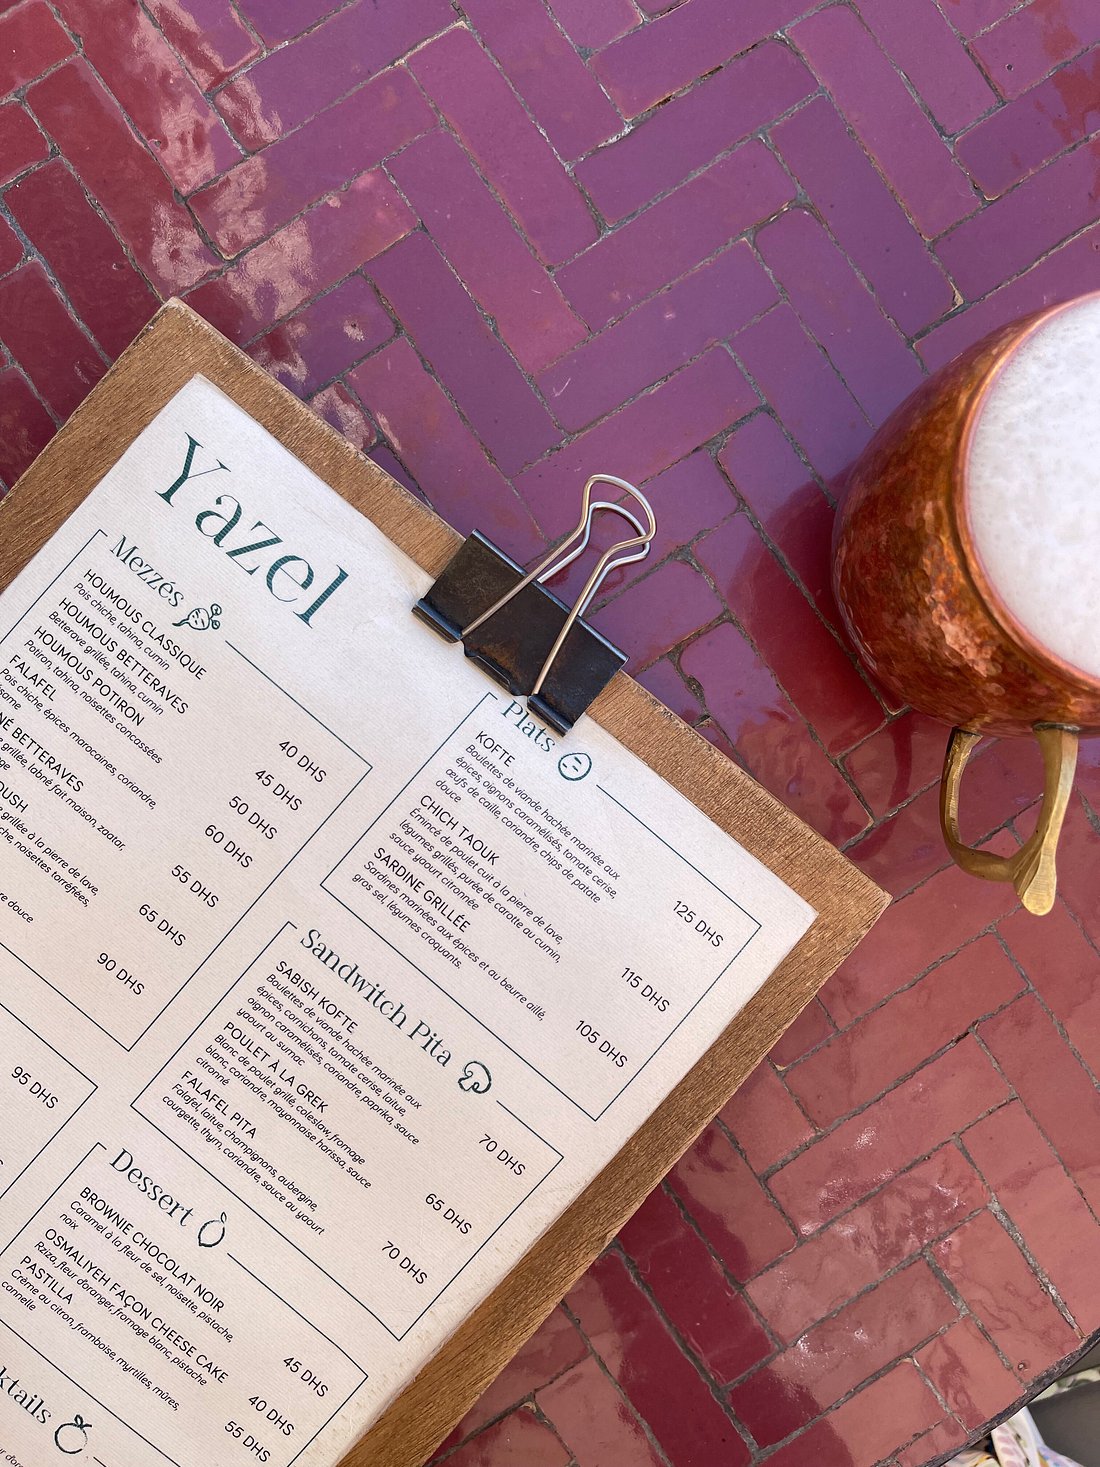 Yazel
Mezzés
HOUMOUS CLASSIQUE
Pois chiche, tahina, cumin
40 DHS
HOUMOUS BETTERAVES
Betterave grillée, tahina, cumin
45 DHS
HOUMOUS POTIRON
Potiron, tahina, noisettes concassées
50 DHS
FALAFEL
Pois chiche, épices marocaines, coriandre,
60 DHS
BETTERAVES
grillée, labné fait maison, zaatar,
55 DHS
grillée à la pierre de lave,
noisettes torréfiées,
65 DHS
douce
90 DHS
95 DHS
Plats
KOFTE
Boulettes de viande hachée marinée aux
épices, oignons caramélisés, tomate cerise,
œufs de caille, coriandre, chips de patate
douce
125 DHS
CHICH TAOUK
Émincé de poulet cuit à la pierre de lave,
légumes grillés, purée de carotte au cumin,
sauce yaourt citronnée
115 DHS
SARDINE GRILLÉE
Sardines marinées aux épices et au beurre aillé,
gros sel, légumes croquants.
105 DHS
Sandwitch Pita
SABISH KOFTE
Boulettes de viande hachée marinée aux
épices, cornichons, tomate cerise, laitue,
oignon caramélisés, coriandre, paprika, sauce
yaourt au sumac
70 DHS
POULET À LA GREK
Blanc de poulet grillé, coleslaw, fromage
blanc, coriandre, mayonnaise harissa, sauce
citronné
65 DHS
FALAFEL PITA
Falafel, laitue, champignons, aubergine,
courgette, thym, coriandre, sauce au yaourt
70 DHS
Dessert
BROWNIE CHOCOLAT NOIR
Caramel à la fleur de sel, noisette, pistache,
noix
45 DHS
OSMALIYEH FAÇON CHEESE CAKE
Rziza, fleur d'oranger, fromage blanc, pistache
40 DHS
PASTILLA
Crème au citron, framboise, myrtilles, mûres,
cannelle
55 DHS